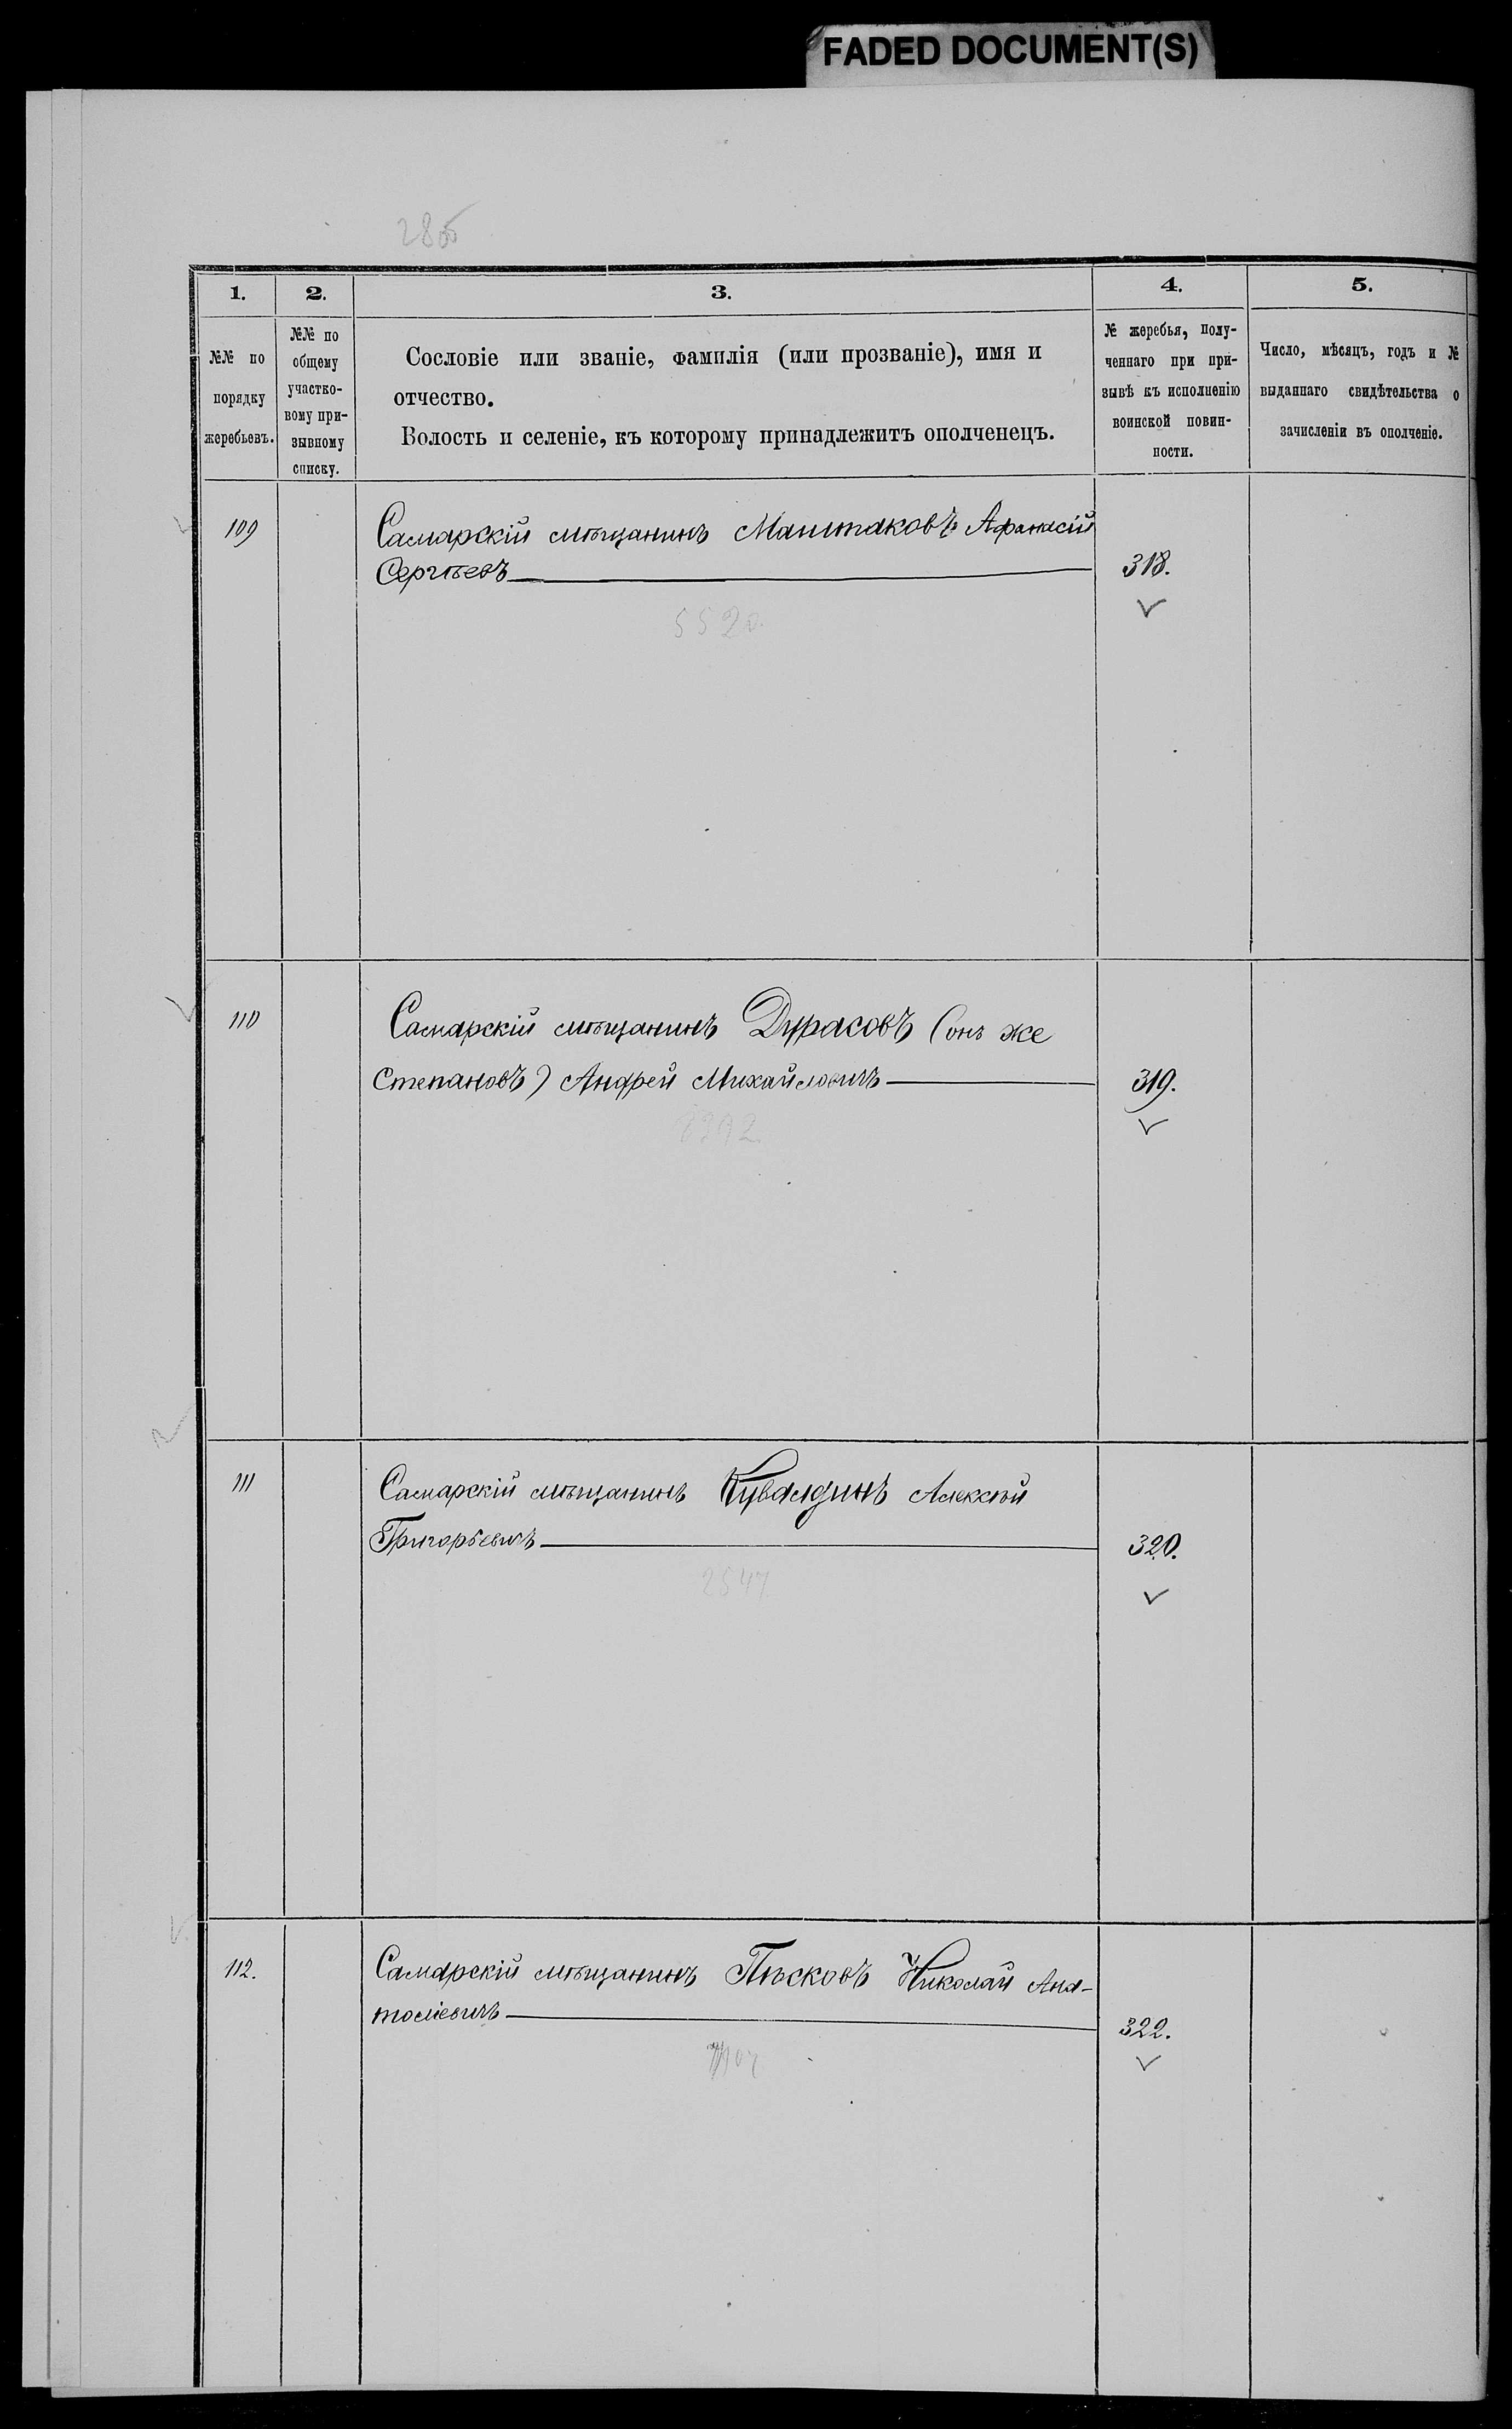 FADED DOCUMENT(S)
1.
2.
3.
4.
5.
№№ по
порядку
жеребьевъ.
№№ по
общему
участко-
вому при-
зывному
списку.
Сословіе или званіе, фамилія (или прозваніе), имя и
отчество.
Волость и селеніе, къ которому принадлежитъ ополченецъ.
№ жеребья, полу-
ченнаго при при-
зывѣ къ исполненію
воинской повин-
ности.
Число, мѣсяцъ, годъ и №
выданнаго свидѣтельства о
зачисленіи въ ополченіе.
109
Самарскій мѣщанинъ Маштаковъ Афанасій
Сергѣевъ
318.
5520.
110
Самарскій мѣщанинъ Дурасовъ (онъ же
Степановъ) Андрей Михайловичъ
319.
111
Самарскій мѣщанинъ Кувалдинъ Алексѣй
Григорьевичъ
320.
2547
112.
Самарскій мѣщанинъ Пѣсковъ Николай Ана-
толіевичъ
322.